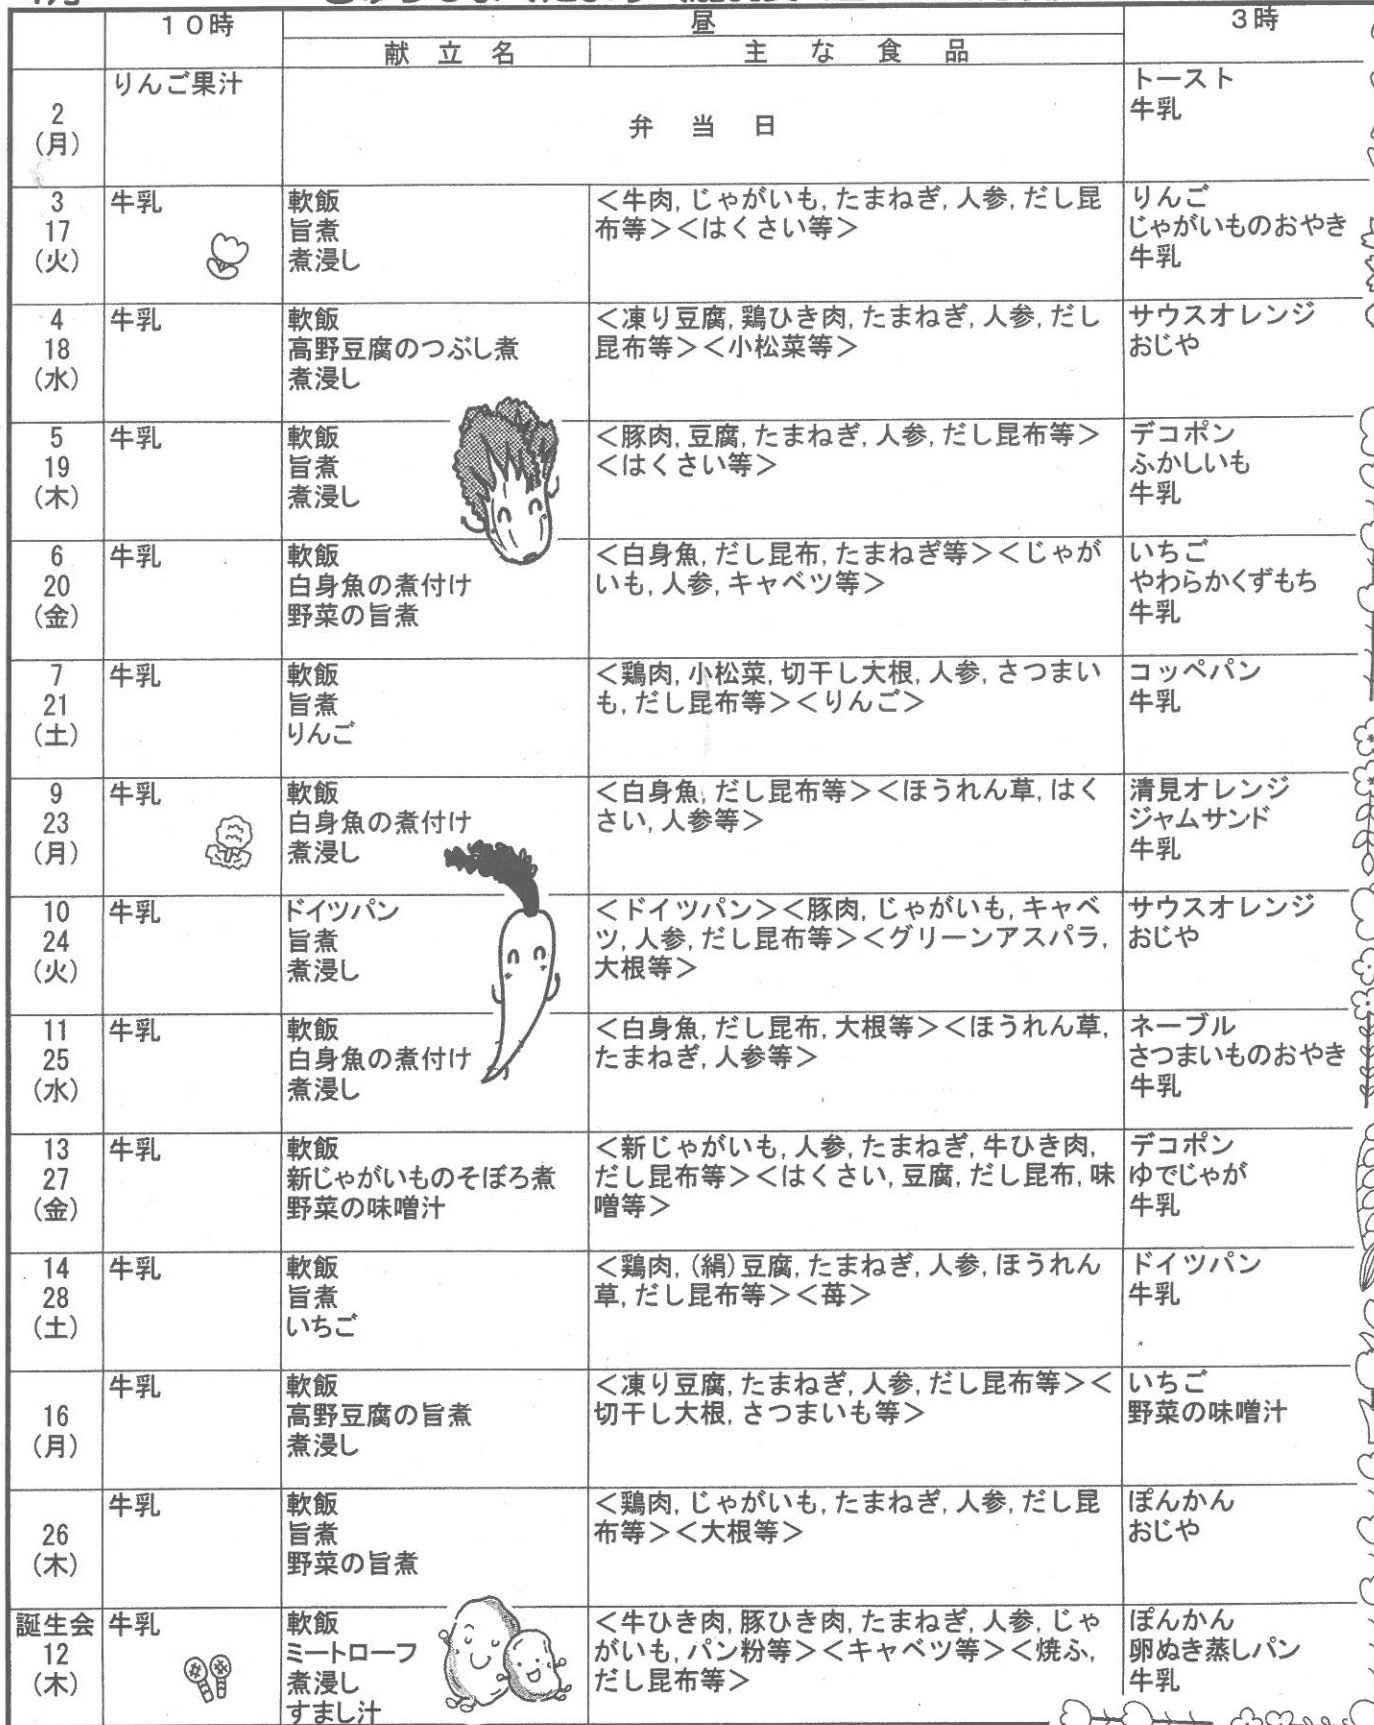 10時 昼 3時
献立名 主な食品
2
(月)
りんご果汁
弁当日
トースト
牛乳
3
17
(火)
牛乳
軟飯
旨煮
煮浸し
＜牛肉,じゃがいも,たまねぎ,人参,だし昆
布等＞＜はくさい等＞
りんご
じゃがいものおやき
牛乳
4
18
(水)
牛乳
軟飯
高野豆腐のつぶし煮
煮浸し
＜凍り豆腐,鶏ひき肉,たまねぎ,人参,だし
昆布等＞＜小松菜等＞
サウスオレンジ
おじや
5
19
(木)
牛乳
軟飯
旨煮
煮浸し
＜豚肉,豆腐,たまねぎ,人参,だし昆布等＞
＜はくさい等＞
デコポン
ふかしいも
牛乳
6
20
(金)
牛乳
軟飯
白身魚の煮付け
野菜の旨煮
＜白身魚,だし昆布,たまねぎ等＞＜じゃが
いも,人参,キャベツ等＞
いちご
やわらかくずもち
牛乳
7
21
(土)
牛乳
軟飯
旨煮
りんご
＜鶏肉,小松菜,切干し大根,人参,さつまい
も,だし昆布等＞＜りんご＞
コッペパン
牛乳
9
23
(月)
牛乳
軟飯
白身魚の煮付け
煮浸し
＜白身魚,だし昆布等＞＜ほうれん草,はく
さい,人参等＞
清見オレンジ
ジャムサンド
牛乳
10
24
(火)
牛乳
ドイツパン
旨煮
煮浸し
＜ドイツパン＞＜豚肉,じゃがいも,キャベ
ツ,人参,だし昆布等＞＜グリーンアスパラ,
大根等＞
サウスオレンジ
おじや
11
25
(水)
牛乳
軟飯
白身魚の煮付け
煮浸し
＜白身魚,だし昆布,大根等＞＜ほうれん草,
たまねぎ,人参等＞
ネーブル
さつまいものおやき
牛乳
13
27
(金)
牛乳
軟飯
新じゃがいものそぼろ煮
野菜の味噌汁
＜新じゃがいも,人参,たまねぎ,牛ひき肉,
だし昆布等＞＜はくさい,豆腐,だし昆布,味
噌等＞
デコポン
ゆでじゃが
牛乳
14
28
(土)
牛乳
軟飯
旨煮
いちご
＜鶏肉,(絹)豆腐,たまねぎ,人参,ほうれん
草,だし昆布等＞＜苺＞
ドイツパン
牛乳
16
(月)
牛乳
軟飯
高野豆腐の旨煮
煮浸し
＜凍り豆腐,たまねぎ,人参,だし昆布等＞＜
切干し大根,さつまいも等＞
いちご
野菜の味噌汁
26
(木)
牛乳
軟飯
旨煮
野菜の旨煮
＜鶏肉,じゃがいも,たまねぎ,人参,だし昆
布等＞＜大根等＞
ぽんかん
おじや
誕生会
12
(木)
牛乳
軟飯
ミートローフ
煮浸し
すまし汁
＜牛ひき肉,豚ひき肉,たまねぎ,人参,じゃ
がいも,パン粉等＞＜キャベツ等＞＜焼ふ,
だし昆布等＞
ぽんかん
卵ぬき蒸しパン
牛乳